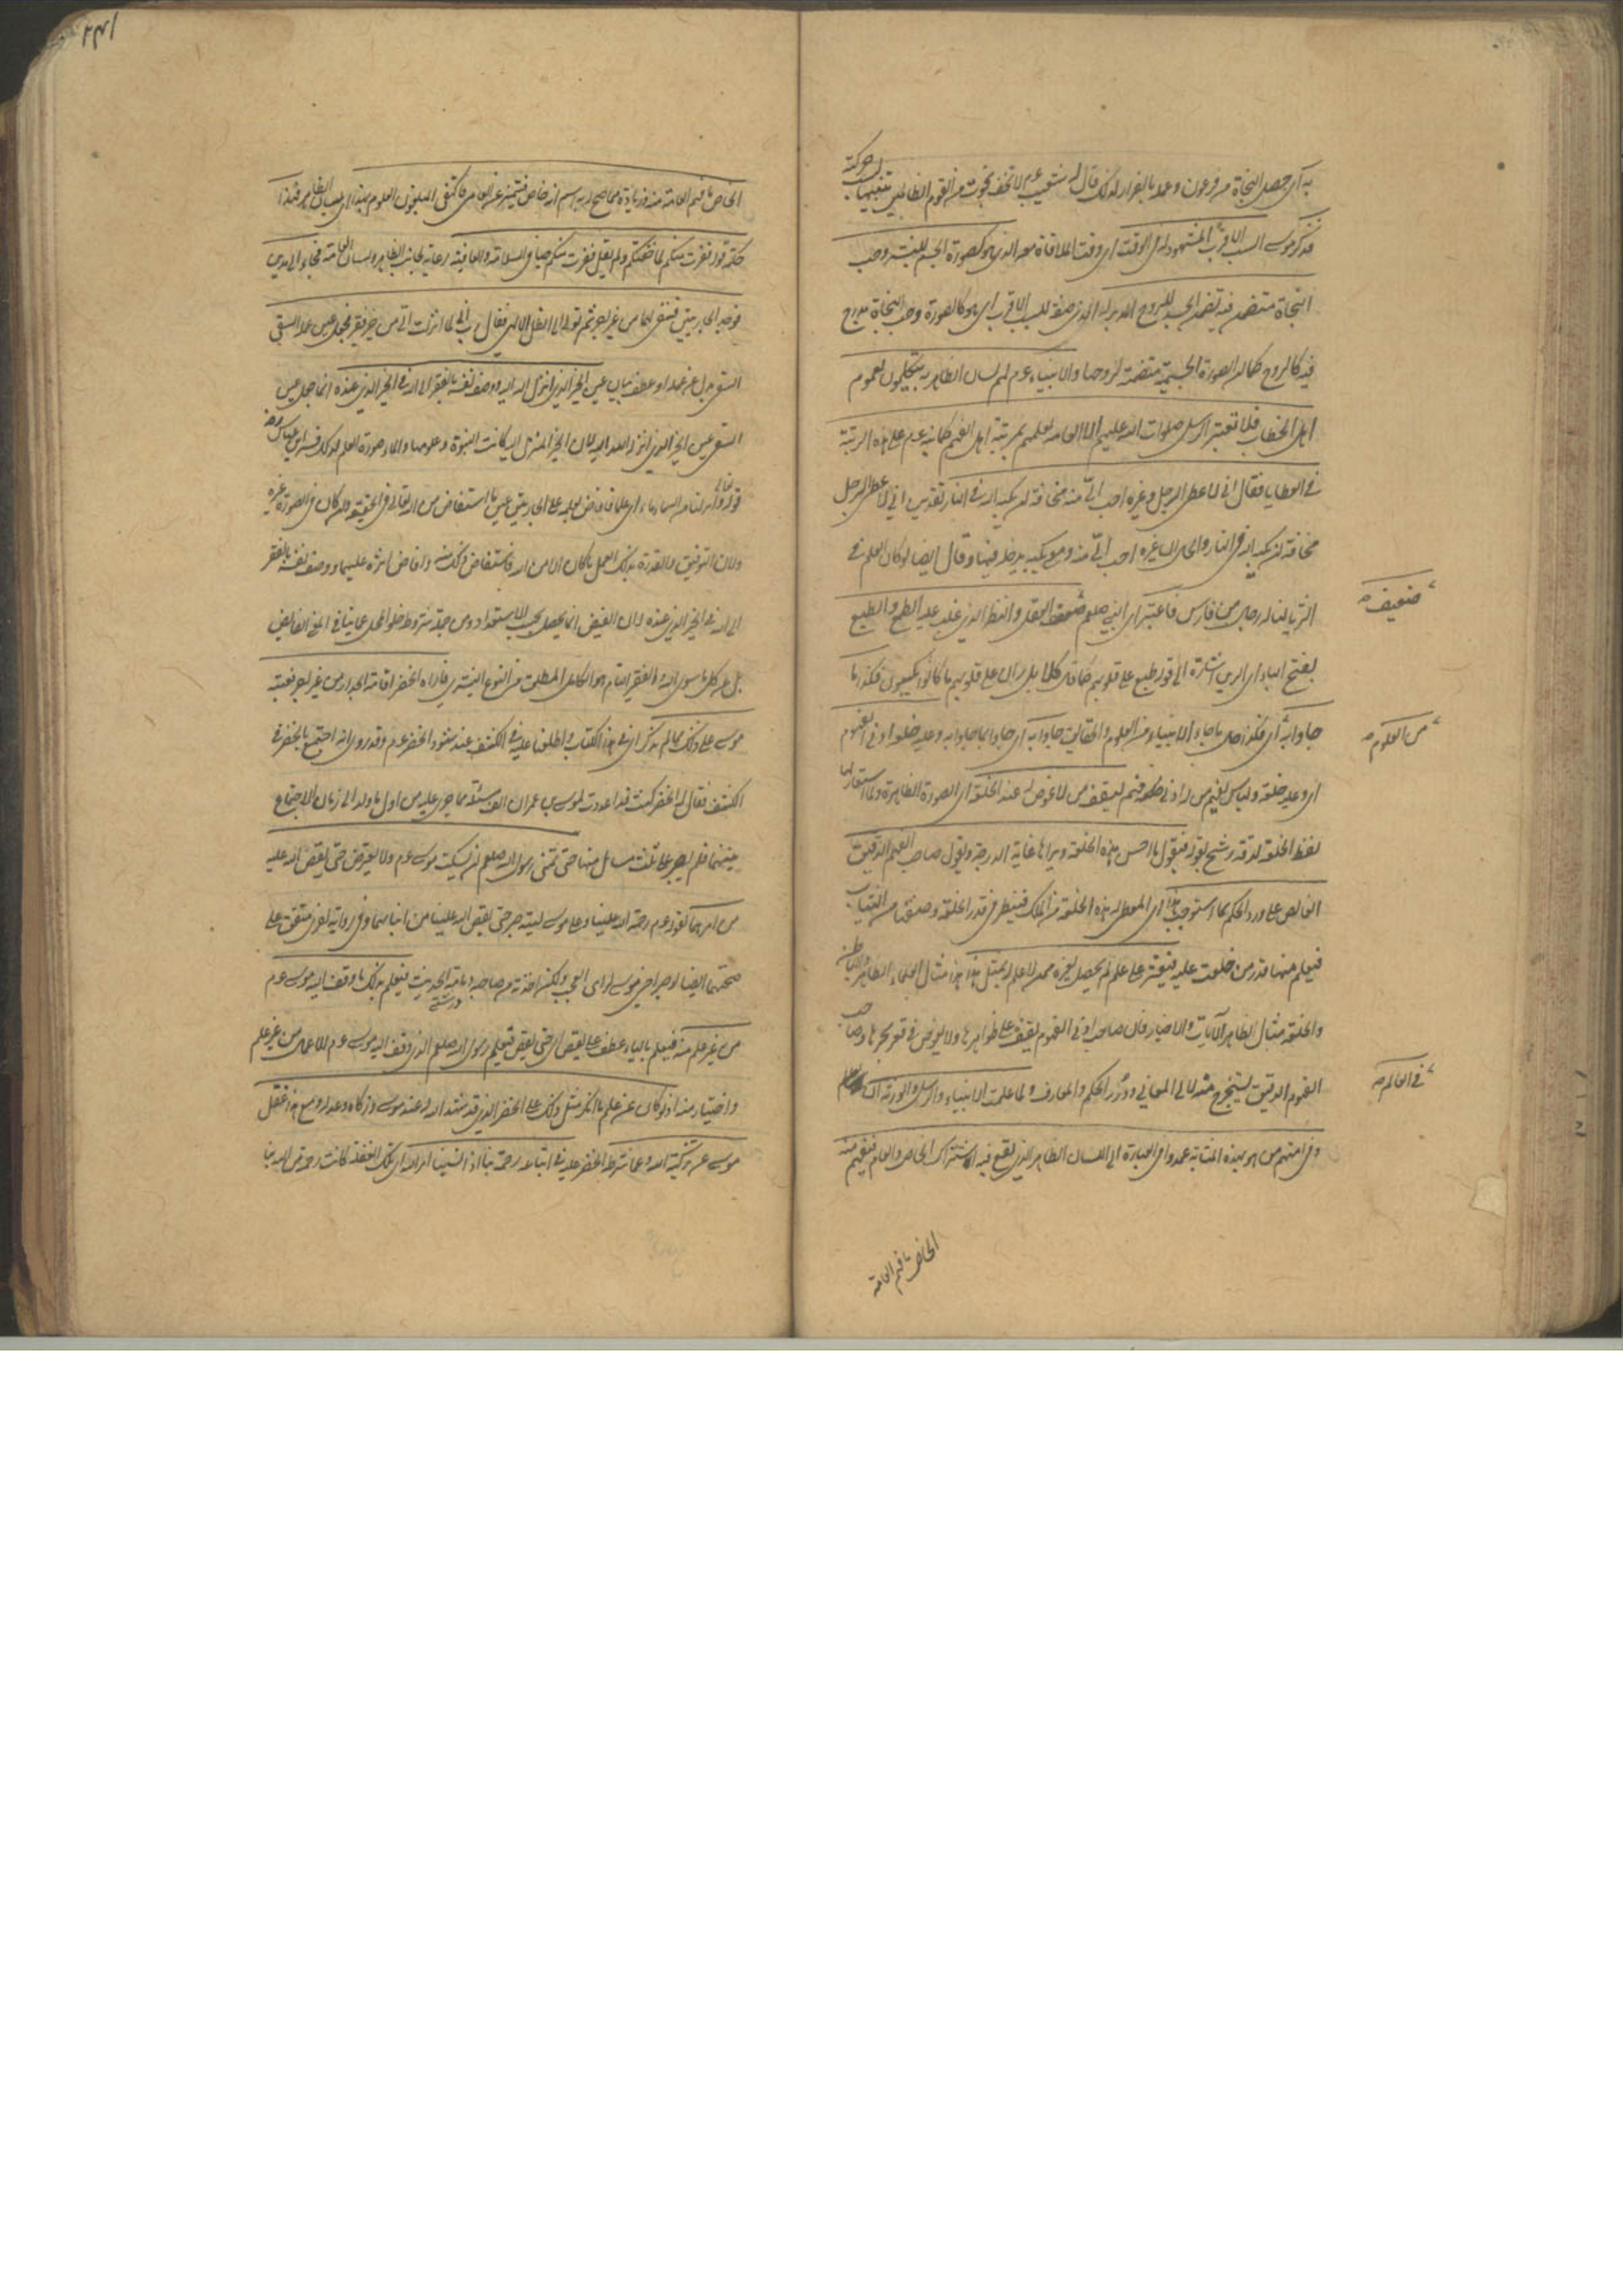 به أي حصل النجاة من فرعون وعمله بالفرار لذلك قال له شعيب عم لا تخف نجوت من القوم الظالمين تنبيها
لحركته
فذكر موسى السبب الأقرب المشهود له في الوقت أي وقت الملاقاة معه الذي هو كصورة الجسم للبشر وحب
النجاة متضمن فيه تضمن الجسد للروح المدبر له الذي صفة للسبب الأقرب أي هو كالصورة وحب النجاة مدرج
فيه كالروح كما أن الصورة الجسمية متضمنة لروحها والأنبياء عم لهم لسان الظاهر به يتكلمون لعموم
أهل الخطاب فلا تعتبر الرسل صلوات الله عليهم إلا العامة لعلمهم بمرتبة أهل الفهم كما نبه عم على هذه الرتبة
في العطايا فقال إني لأعطي الرجل وغيره أحب إلي منه مخافة أن يكبه الله في النار تقديره إني لأعطي الرجل
مخافة أن يكبه الله في النار والحال أن غيره أحب إلي منه ومع يكبه يدخله فيها وقال أيضا لو كان العلم في
الثريا لناله رجال من فارس فاعتبر أي النبي صلعم ضعيف العقل والنظر الذي غلب عليه الطمع والطبع
ضعيف صح
بفتح الباء أي الرين إشارة إلى قوله طبع على قلوبهم كما قال كلا بل ران على قلوبهم ما كانوا يكسبون فكذا ما
جاؤا به أي فكذا حال ما جاء به الأنبياء من العلوم والحقايق جاؤا به أي جاؤا بما جاؤا به وعليه خلعة أدنى الفهوم
من العلوم صح
أي وعليه خلعة ولباس لفهم من له أدنى ظهور فهم ليقف من لا غوص له عند الخلعة أي الصورة الظاهرة ولما استعار لها
لفظ الخلعة لقدره رشح بقوله فيقول ما أحسن هذه الخلعة ويراها غاية الدرجة ويقول صاحب الفهم الدقيق
الغائص على درر الحكم بما استوجب هذا أي المعطى له هذه الخلعة من الملك فينظر في قدر الخلعة وصنفها من الثياب
فيعلم منها قدر من خلعت عليه فيعثر على علم لم يحصل لغيره ممن لا علم له بمثل هذا هذا مثال العلماء الظاهر والباطن
والخلعة مثال الظاهر الآيات والأخبار فإن صاحب أدنى الفهوم يقف على ظواهرها ولا يغوص في قعر بحرها وصاحب
الفهوم الدقيق يستخرج منه لآلي المعاني ودرر الحكم والمعارف ولما علمت الأنبياء والرسل والورثة أن
في العالم صح
وفي أمتهم من هو بهذه المثابة عمدوا في العبارة إلى اللسان الظاهر الذي يقع فيه اشتراك الخاص والعام فيفهم منه
الخاص ما فهم العامة
١٣٢
الخاص ما فهم العامة منه وزيادة مما صح له به اسم أنه خاص فيتميز به عن العامي فاكتفى المبلغون العلوم بهذا أي بلسان الظاهر فهذا
حكمة قوله ففررت منكم لما خفتكم ولم يقل ففررت منكم حبا في السلامة والعافية رعاية لجانب الظاهر ولسان العامة فجاء إلى مدين
فوجد الجاريتين فسقى لهما من غير أجر ثم تولى إلى الظل الإلهي فقال رب إني لما أنزلت إلي من خير فقير فجعل عين عمله السقي
السقي بدل عن عمله أو عطف بيان عين الخير الذي أنزل الله إليه ووصف نفسه بالفقر إلى الله في الخير الذي عنده إنما جعل عين
السقي عين الخير الذي أنزله الله إليه لأن الخير المنزل إليه كانت النبوة وعلومها والماء صورة العلم لذلك فسر ابن عباس رضه
قوله تعالى وأنزلنا من السماء ماء أي علما فأفاض لعلمه على الجاريتين عين ما استفاض من الله تعالى في الحقيقة وإن كان في الصورة غيره
ولأن التوفيق والقدرة بذلك العمل ما كان إلا من الله فاستفاض ذلك منه وأفاض أثره عليهما ووصف نفسه بالفقر
إلى الله في الخير الذي عنده لأن الفيض إنما يحصل بحسب الاستعداد ومن جملة شروطه خلو المحل عما ينافي المعنى الفائض
بل عن كل ما سوى الله والفقير التام هو الكامل المطلق من النوع البشري فأراه الخضر إقامة الجدار من غير أجر فعتبه
موسى على ذلك مما لم يذكر أي في هذا الكتاب واطلعنا عليه في الكشف عند شهود الخضر عم وقد روي أنه اجتمع بالخضر في
الكشف فقال له الخضر كنت قد أعددت لموسى بن عمران ألف مسئلة مما جرى عليه من أول ما ولد إلى زمان الاجتماع
بينهما فلم يصبر على ثلث مسائل منها حتى تمنى رسول الله صلعم أن يسكت موسى عم ولا يعترض حتى يقص الله عليه
من أمرهما كقوله عم رحمة الله علينا وعلى موسى ليته صبر حتى يقص الله علينا من أنبائهما وفي رواية أخرى متفق على
صحتها أيضا لو صبر أخي موسى لرأى العجب ولكنه أخذته من صاحبه ذمامة الحديث فيعلم بذلك ما وقف إليه موسى عم
من غير علم منه فيعلم بالياء عطف على يقص أي حتى يقص فيعلم رسول الله صلعم الذي وقف إليه موسى عم للأعمال من غير علم
واختيار منه إذ لو كان عن علم ما أنكر مثل ذلك على الخضر الذي قد شهد الله له عند موسى وزكاه وعدله ومع هذا غفل
موسى عن تزكية الله وعما شرط الخضر عليه في اتباعه رحمة بنا إذا نسينا أمر الله أي تلك الغفلة كانت رحمة من الله بنا